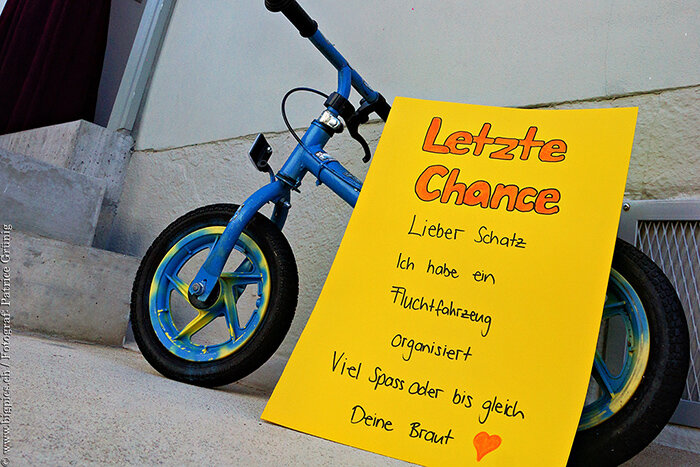 Letzte
Chance
Lieber Schatz
Ich habe ein
Fluchtfahrzeug
organisiert
Viel Spass oder bis gleich
Deine Braut
© www.bigpics.ch / Fotograf: Patrice Grünig